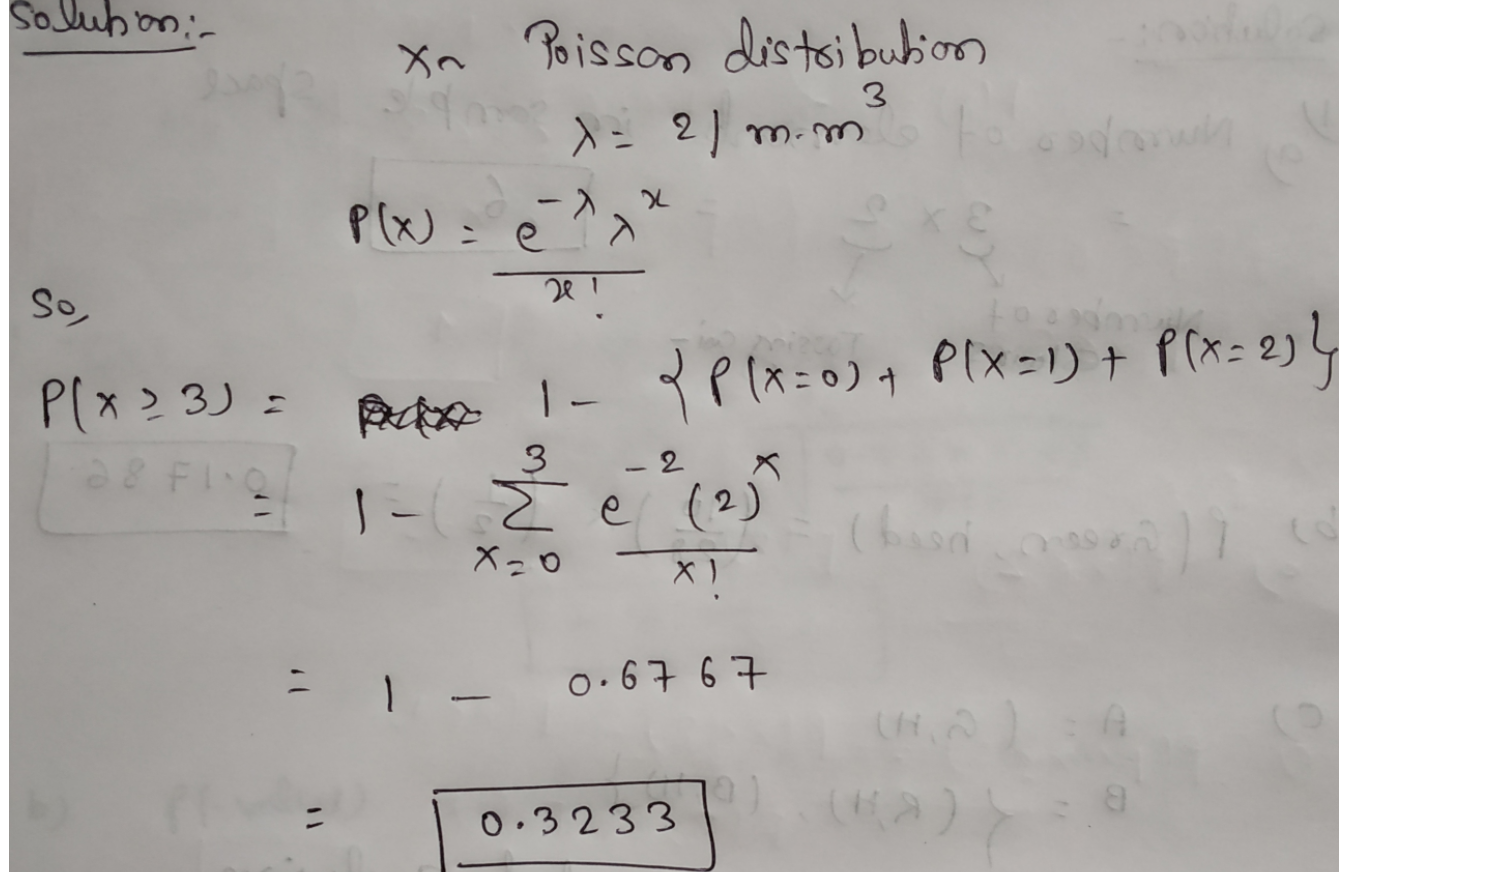 Solution:-
X~ Poisson distribution
λ = 2/m.m³
P(x) = e^-λ λ^x / x!
So,
P(x ≥ 3) = 1 - {P(x=0) + P(x=1) + P(x=2)}
= 1 - 3 Σ x=0 e^-2 (2)^x / x!
= 1 - 0.6767
= 0.3233